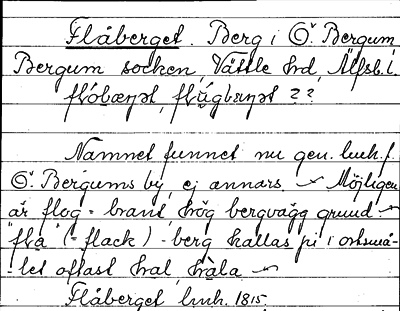 Flåberget. Berg i Ö. Bergum
Bergum socken, Vättle hd, Älfsb. l.
flóbæręt, flųgbæręt ??
Namnet funnet nu gen. lmh. f.
Ö. Bergums by, ej annars. – Möjligen
är flog = brant, hög bergvägg grund –
"fla" (= flack) - berg kallas ju i ortsmå-
-let oftast hal, hàla –
Flåberget lmh. 1815